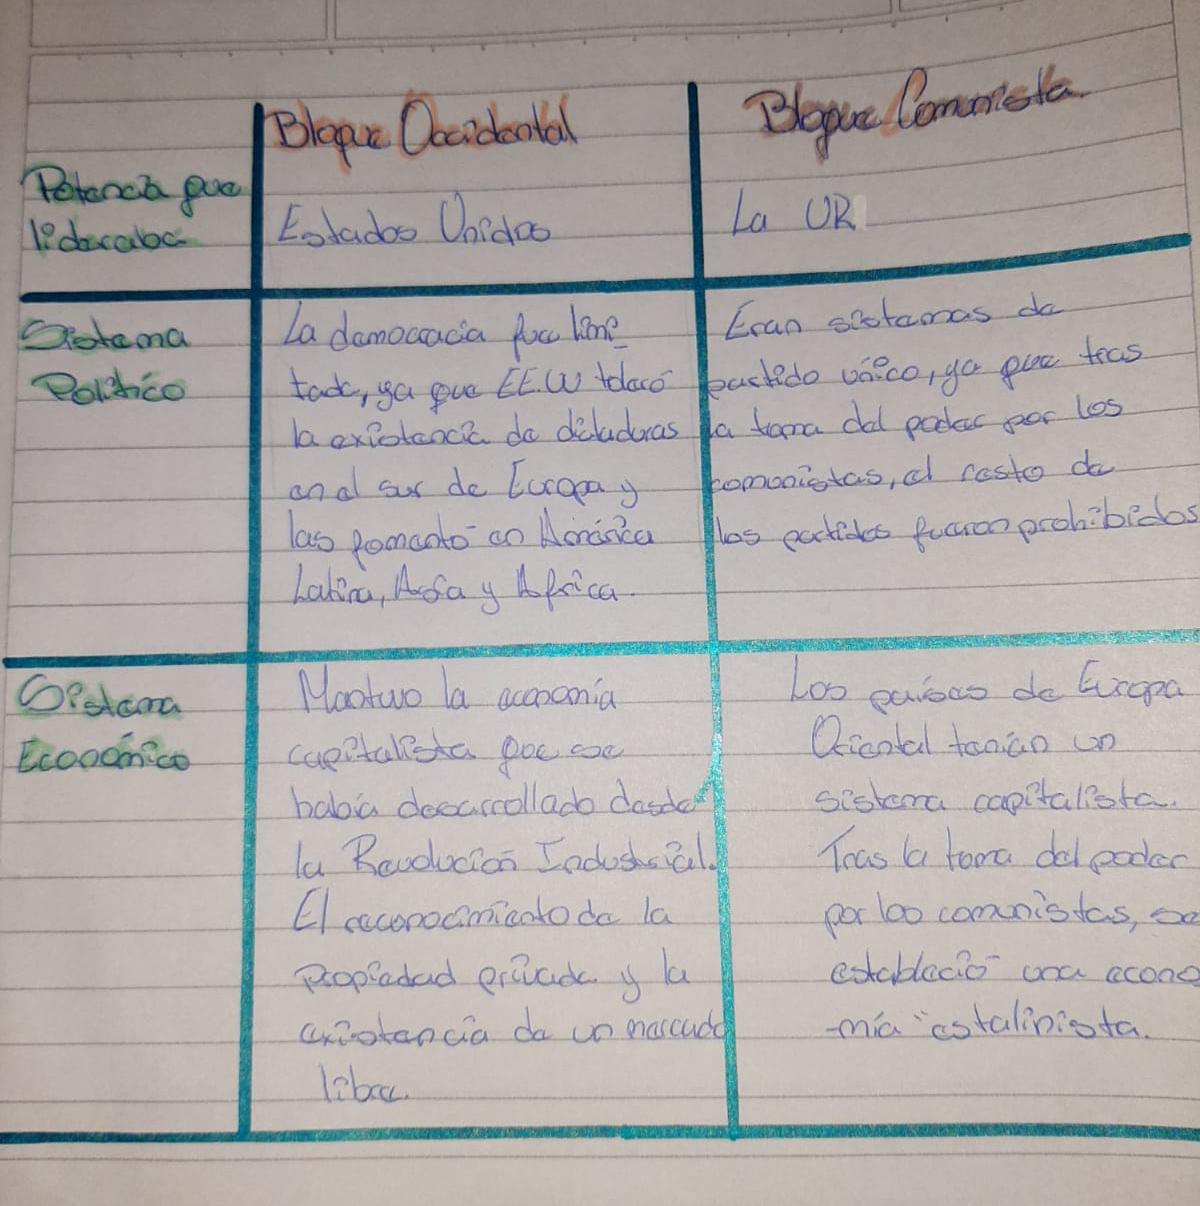 Bloque Occidental
Bloque Comunista.
Potencia que
lideraba
Estados Unidos
La UR
Sistema
Político
La democracia fue limi
tada, ya que EE.UU toleró
la existencia de dictaduras
en el sur de Europa y
las fomentó en América
Latina, Asia y Africa.
Eran sistemas de
partido único, ya que tras
la toma del poder por los
comunistas, el resto de
los partidos fueron prohibidos
Sistema
Económico
Mantuvo la economía
capitalista que se
había desarrollado desde
la Revolución Industrial.
El reconocimiento de la
propiedad privada y la
existencia de un mercado
libre.
Los países de Europa
Oriental tenían un
sistema capitalista.
Tras la toma del poder
por los comunistas, se
estableció una econo
-mía "estalinista.